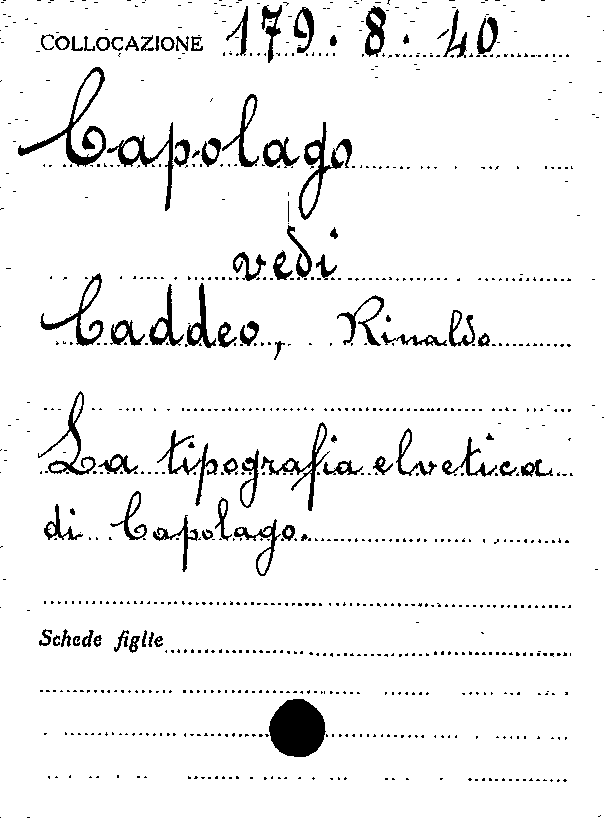 COLLOCAZIONE 179. 8. 40
Capolago
vedi
Caddeo, Rinaldo
La tipografia elvetica
di Capolago.
Schede figlie